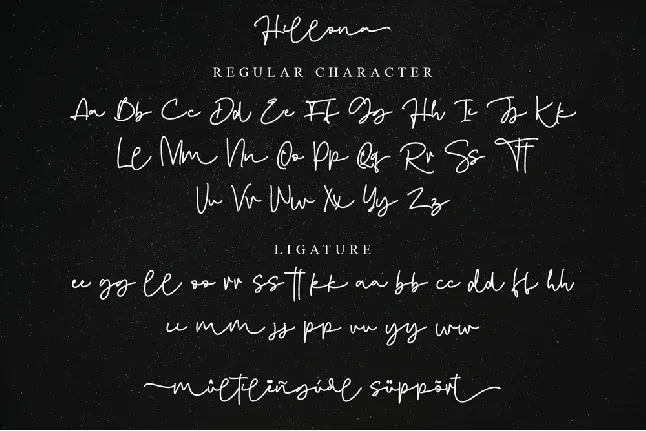 Hillona
REGULAR CHARACTER
Aa Bb Cc Dd Ee Ff Gg Hh Ii Jj Kk
Ll Mm Nn Oo Pp Qq Rr Ss Tt
Uu Vv Ww Xx Yy Zz
LIGATURE
ee gg ll oo rr ss tt kk aa bb cc dd ff hh
ii mm jj pp uu yy ww
mùltilïñgúâl süppõrt